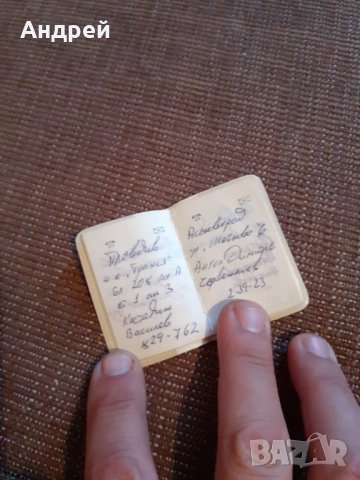 Андрей
Пловдив
ж.к. "Тракия"
бл. 208 вх. А
ет. 1 ап. 3
Костадин
Василев
829-762
Асеновград
Ангел Димитров
2-39-23
BAZAR